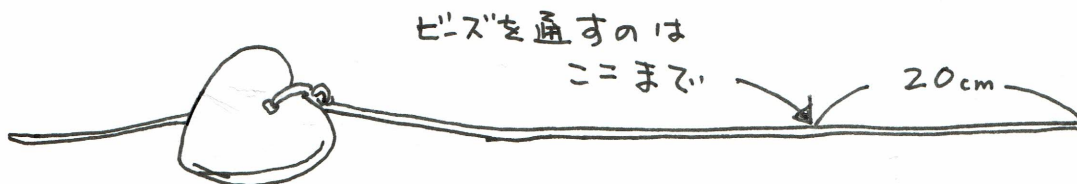 ビーズを通すのは
ここまで
20cm